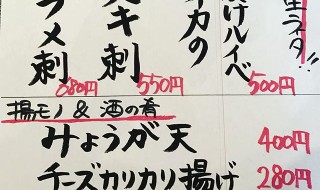 生ライタ!!
漬けルイベ
500円
イカの
スキ刺
550円
ラメ刺
680円
揚モノ & 酒の肴
みょうが天 400円
チーズカリカリ揚げ 280円